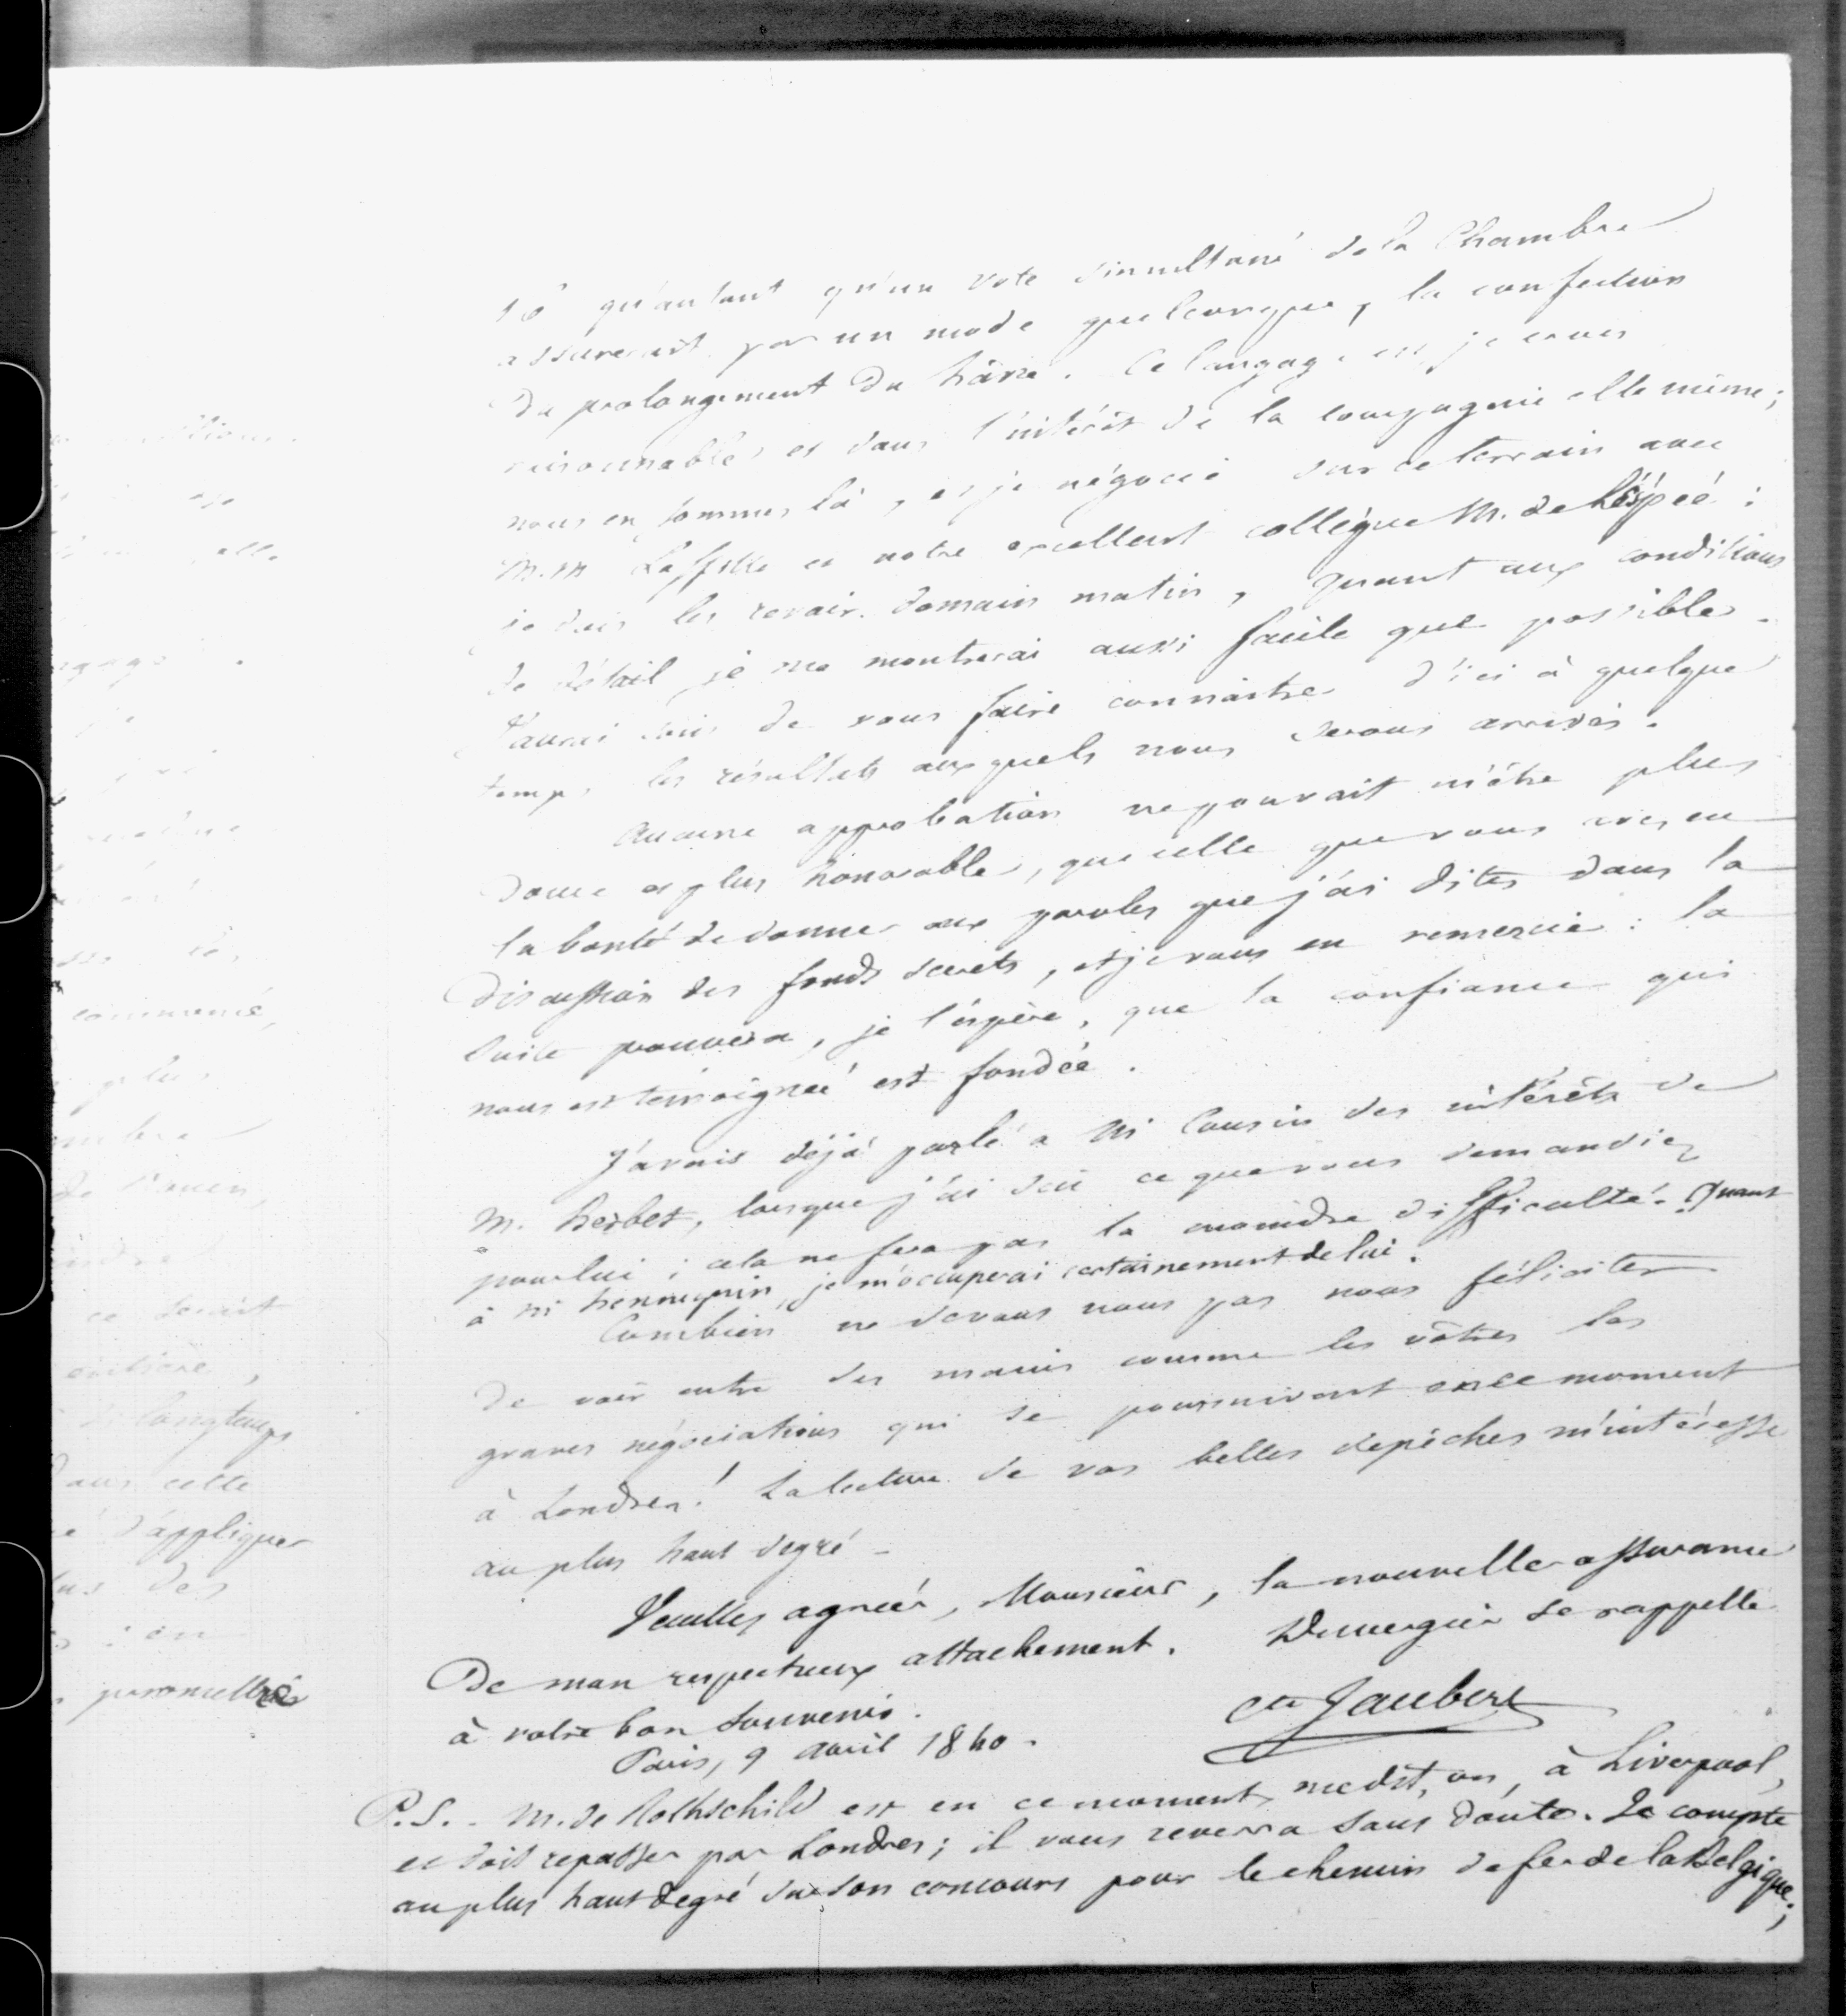 qu'autant qu'un vote simultané de la Chambre
assurerait par un mode quelconque, la confection
du prolongement du hâvre. Ce langage est je crois
raisonnable et dans l'intérêt de la compagnie elle même;
nous en sommes là, et je négocie sur ce terrain avec
M.M. Laffitte et notre excellent collègue M. de Léspéé :
je dois les revoir demain matin, quant aux conditions
de détail je me montrerai aussi facile que possible.
J'aurai soin de vous faire connaître d'ici à quelque
temps les résultats auxquels nous serons arrivés.
Aucune approbation ne pouvait m'être plus
douce et plus honorable, que celle que vous avez eu
la bonté de donner aux paroles que j'ai dites dans la
discussion des fonds secrets, et je vous en remercie : la
suite prouvera, je l'éspère, que la confiance qui
nous est témoignée est fondée.
J'avais déjà parlé a M Cousin des intérêts de
M. herbet, lorsque j'ai su ce que vous demandiez
pour lui ; cela ne fera pas la moindre difficulté. Quant
à M hennequin, je m'occuperai certainement de lui.
Combien ne devons nous pas nous féliciter
de voir entre des mains comme les vôtres les
graves négociations qui se poursuivent en ce moment
à Londres ! La lecture de vos belles depêches m'intéresse
au plus haut degré -
Veuillez agréér, Monsieur, la nouvelle assurance
De mon respectueux attachement. Duvergier se rappelle
à votre bon souvenir.
Cte Jaubert
Paris, 9 avril 1840.
P.S. - M. de Rothschild est en ce moment, me dit, on, à Liverpool,
et doit repasser par Londres; il vous reverra sans doute. Je compte
au plus haut degré sur son concours pour le chemin de fer de la Belgique;
commencé,
plus
de Rouen,
ce serait
entière,
longtemps
dans cette
d'appliquer
des
en
permettre